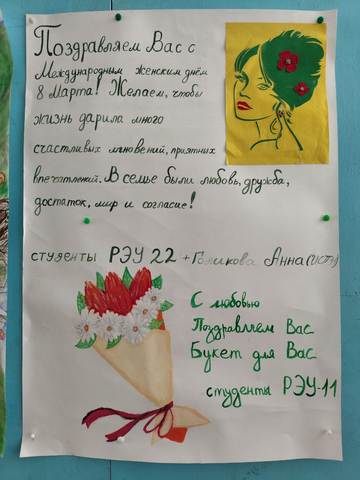 Поздравляем Вас с
Международным женским днём
8 Марта! Желаем, чтобы
жизнь дарила много
счастливых мгновений, приятных
впечатлений. В семье были любовь, дружба,
достаток, мир и согласие!
студенты РЭУ 22 + Голикова Анна
С любовью
Поздравляем Вас
Букет для Вас
студенты РЭУ-11